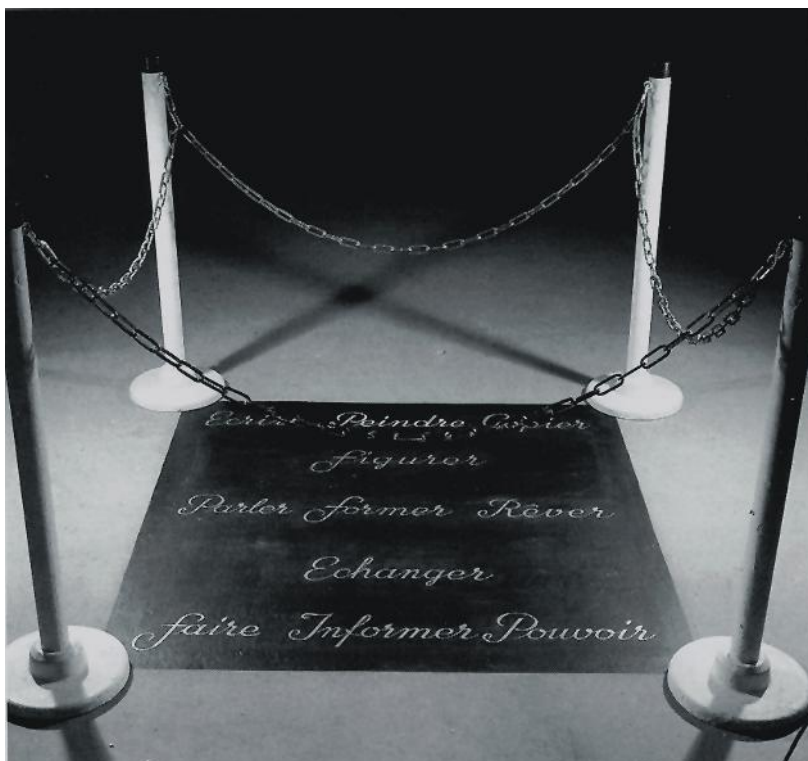 Ecrire Peindre Copier
Figurer
Parler former Rêver
Echanger
faire Informer Pouvoir